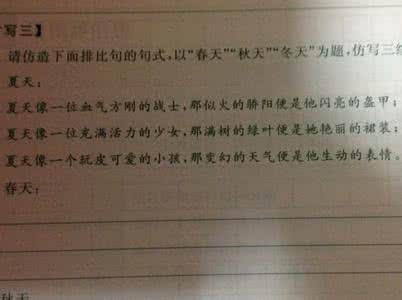 写三】
请仿造下面排比句的句式,以“春天”“秋天”“冬天”为题,仿写三
夏天:
夏天像一位血气方刚的战士,那似火的骄阳便是他闪亮的盔甲;
夏天像一位充满活力的少女,那满树的绿叶便是她艳丽的裙装;
夏天像一个玩皮可爱的小孩,那变幻的天气便是他生动的表情。
春天:
秋天